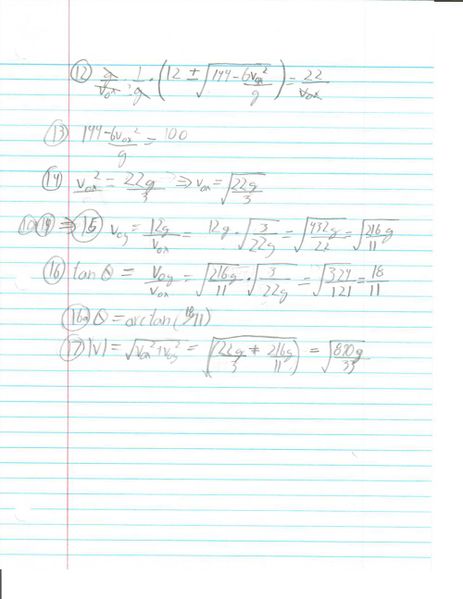 ⑫ g/v₀ₓ · 1/g · (12 ± √(144 - 6v₀ₓ²/g)) = 22/v₀ₓ
⑬ 144 - 6v₀ₓ²/g = 100
⑭ v₀ₓ² = 22g/3 ⇒ v₀ₓ = √(22g/3)
⇒ ⑮ v₀y = 12g/v₀ₓ = 12g · √(3/22g) = √(432g/22) = √(216g/11)
⑯ tan θ = v₀y/v₀ₓ = √(216g/11) · √(3/22g) = √(324/121) = 18/11
⑯a θ = arctan(18/11)
⑰ |V| = √(v₀ₓ² + v₀y²) = √(22g/3 + 216g/11) = √(890g/33)